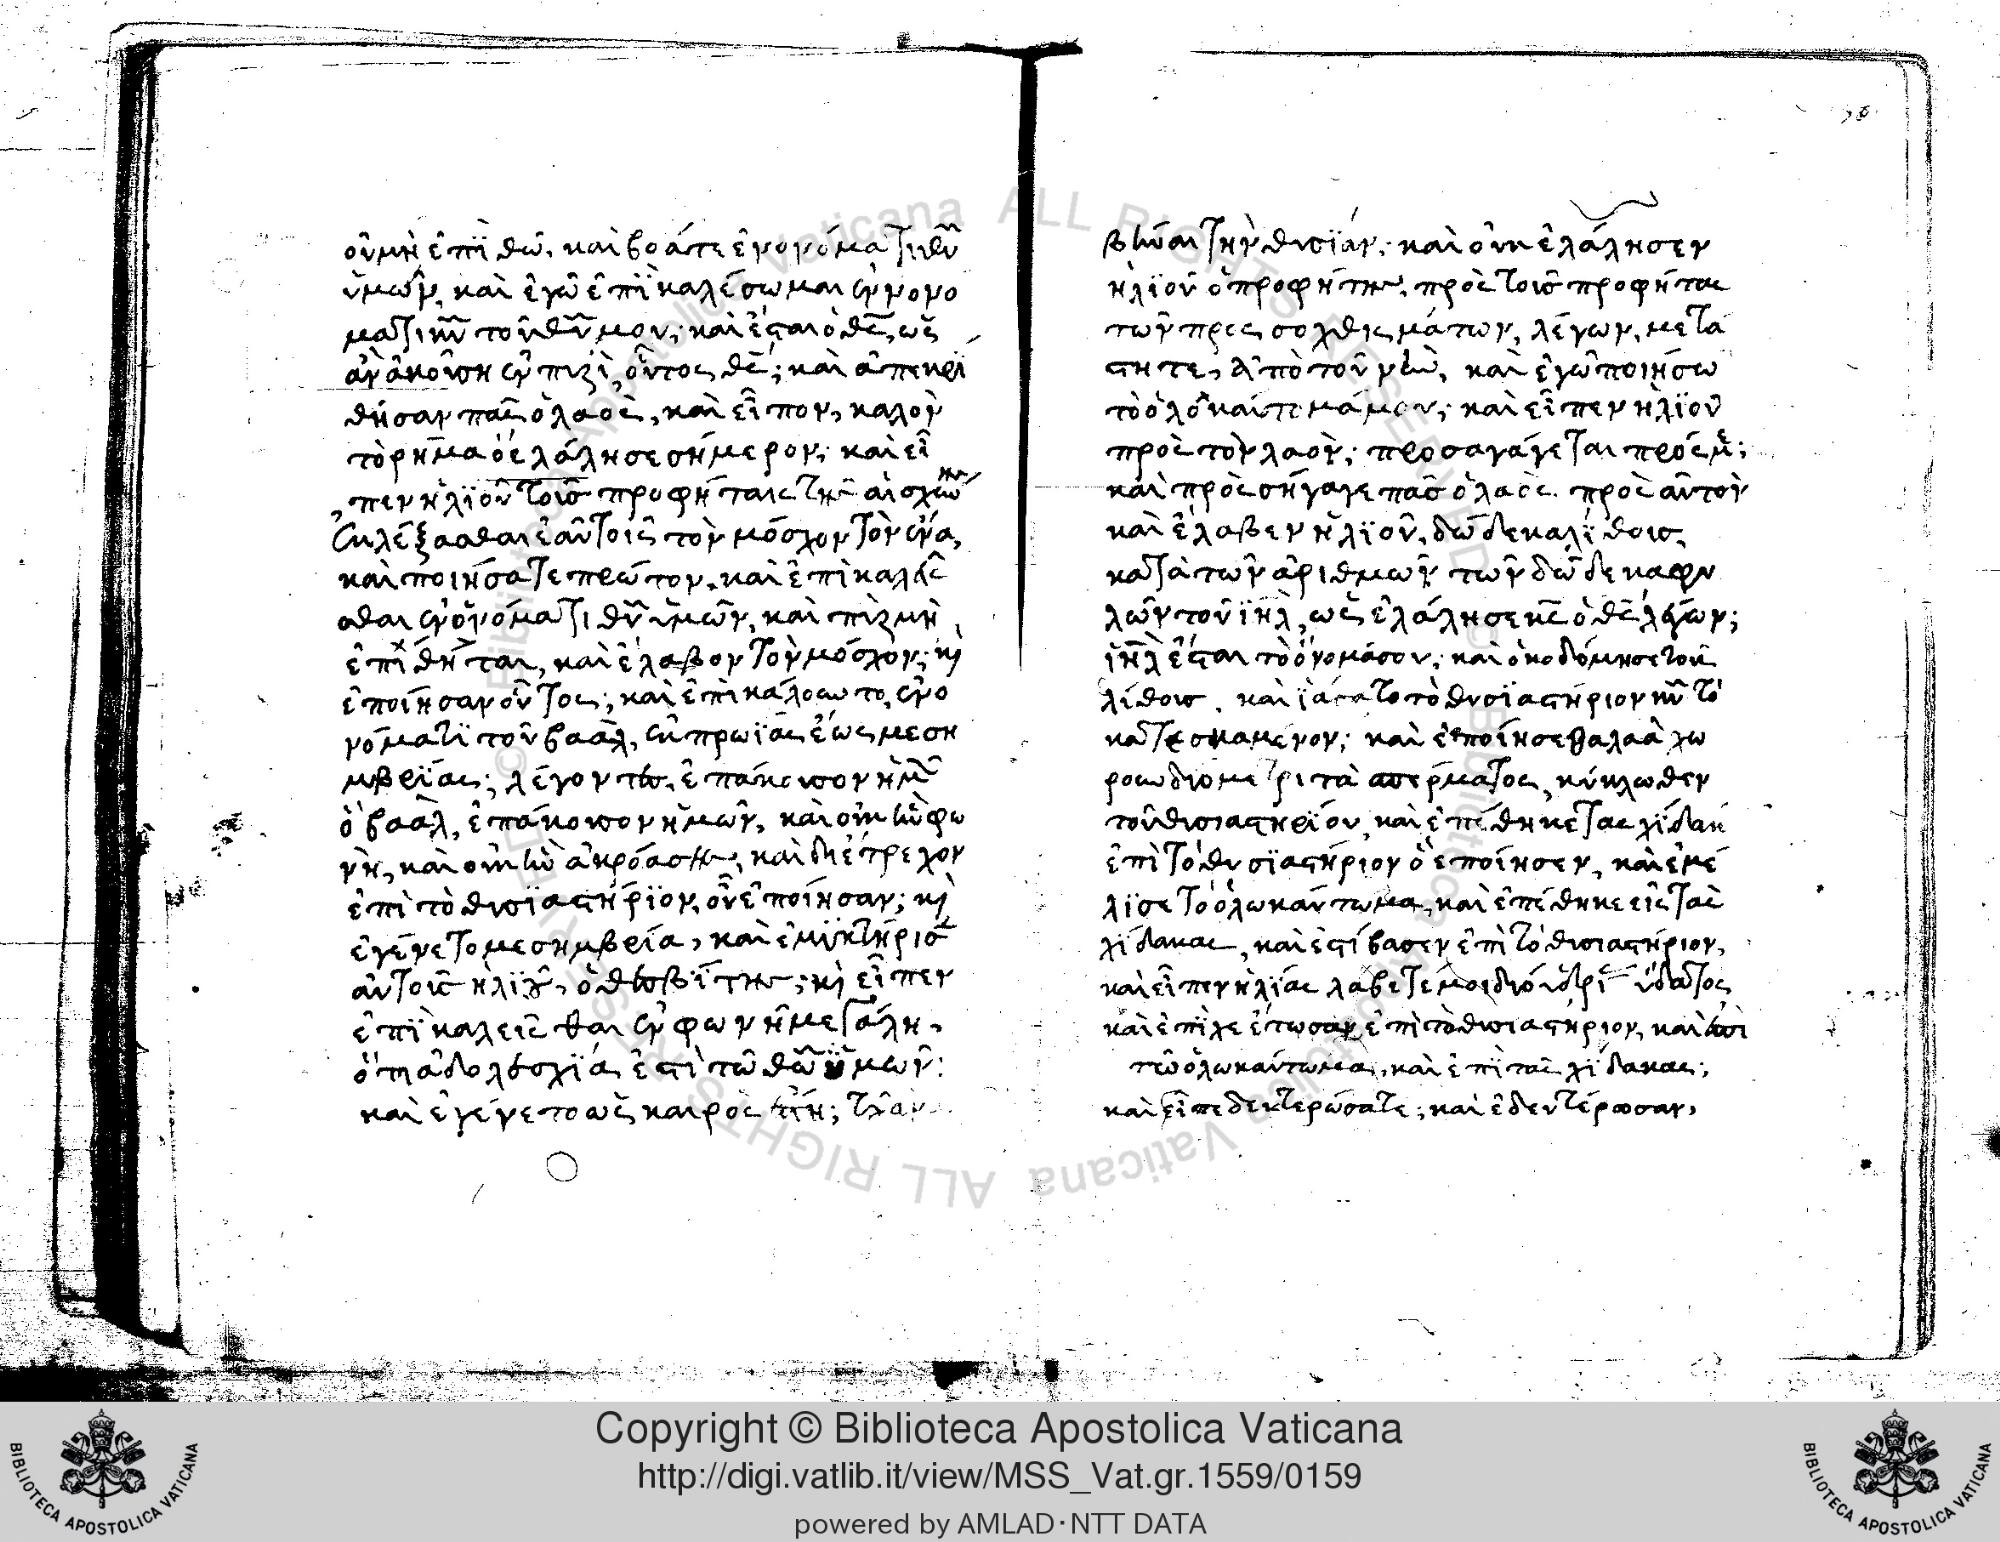 οὐ μὴ ἐπϊθῶ. καὶ βοάτε ἐν ὀνόματι θῦ
ὑμῶν, καὶ ἐγῶ ἐπϊκαλέσωμαι ἐν ὀνο
ματι κῦ τοῦ θῦ μου; καὶ ἔσται ὁ θς, ὡς
ἀν ἀκούση ἐν πιρὶ, οὗτος θς; καὶ ἀπεκρϊ
θήσαν πᾶς ὁ λαὸς, καὶ εἶπον, καλὸν
τὸ ρῆμα ὁ ἐλάλησε σήμερον; καὶ εἶ
πεν ἠλϊοῦ τοῖς προφήταις τῆς αἰσχύνης
ἐκλέξασθαι ἑαὐτοῖς τὸν μόσχον τὸν ἕνα,
καὶ ποιήσατε πρώτον, καὶ ἐπὶκαλεῖς
θαι ἐν ὀνόματι θῦ ὑμῶν, καὶ πὶρ μὴ
ἐπϊθῆται, καὶ ἔλαβον τὸν μόσχον; κὶ
ἐποίησαν οὕτος; καὶ ἐπὶκάλοωτο, ἐν ὀ
νόματϊ τοῦ βαάλ, ἐκ πρωϊας ἕως μεση
μβρϊας; λέγοντες, ἐπάκουσον ἡμῶν
ὁ βαὰλ, ἐπάκουσον ἡμῶν, καὶ οὐκ ἠν φω
νὴ, καὶ οὐκ ἠν ἀκρόασης, καὶ διέτρεχον
ἐπὶ τὸ θυσϊαστήρϊον, οὗ ἐποίησαν; κὶ
ἐγένετο μεσημβρία, καὶ ἐμϊκτήρισεν
αὐτοῖς ἠλϊοῦ, ὁ θεσβίτης; κὶ εἶπεν
ἐπϊκαλεῖσθαι ἐν φωνῆ μεγάλη,
ὅτι ἀδολεσχϊά ἐστὶ τῶ θῶ ὑμῶν:
καὶ ἐγένετο ὡς καιρὸς
τὴν θυσϊάν; καὶ οὐκ ἐλάλησεν
ἠλϊοῦ ὁ προφήτης, πρὸς τοῖς προφήτας
τῶν προς σοχθισμάτων, λέγων, μετά
στητε, ἀπὸ τοῦ νῦν, καὶ ἐγῶ ποιήσω
τὸ ὁλοκαύτομά μου; καὶ εἶπεν ἠλϊοῦ
πρὸς τὸν λαὸν; προσαγάγεται πρός με;
καὶ πρὸσήγαγε πᾶς ὁ λαὸς πρὸς αὐτὸν
καὶ ἔλαβεν ἠλϊοῦ, δώδεκα λίθοις,
κατὰ τῶν ἀριθμῶν τῶν δώδεκα φυ
λῶν τοῦ ϊηλ, ὡς ἐλάλησε κς ὁ θς λέγων;
ϊηλ ἔσται τὸ ὄνομά σου; καὶ ὀκοδόμησε τοὺς
λίθοις. καὶ ϊάσατο τὸ θυσϊαστήριον κῦ τὸ
κατεσκαμένον; καὶ ἐποίησε θαλαὰ χω
ροω διομετρι τὰ σπέρματος, κύκλωθεν
τοῦ θυσιαστηρίου, καὶ ἐπέθηκε τὰς χίδακ
ἐπὶ τὸ θυσϊαστήριον ὁ ἐποίησεν, καὶ ἐμέ
λϊσε τὸ ὁλωκαύτωμα, καὶ ἐπέθηκε εἰς τὰς
χίδακας, καὶ ἐστίβασεν ἐπὶ τὸ θυσιαστήριον,
καὶ εἶπεν ἠλίας λάβετέ μοι δϊο ὑδρί ὕδατος
καὶ ἐπϊχεέτωσαν ἐπὶ τὸ θυσιαστήριον, καὶ ἐπὶ
τῶ ὁλωκαύτωμα, καὶ ἐπὶ τὰς χίδακας;
καὶ εἶπε δευτερώσατε; καὶ ἐδευτέρωσαν,
Copyright © Biblioteca Apostolica Vaticana
http://digi.vatlib.it/view/MSS_Vat.gr.1559/0159
powered by AMLAD·NTT DATA
BIBLIOTECA APOSTOLICA VATICANA
BIBLIOTECA APOSTOLICA VATICANA